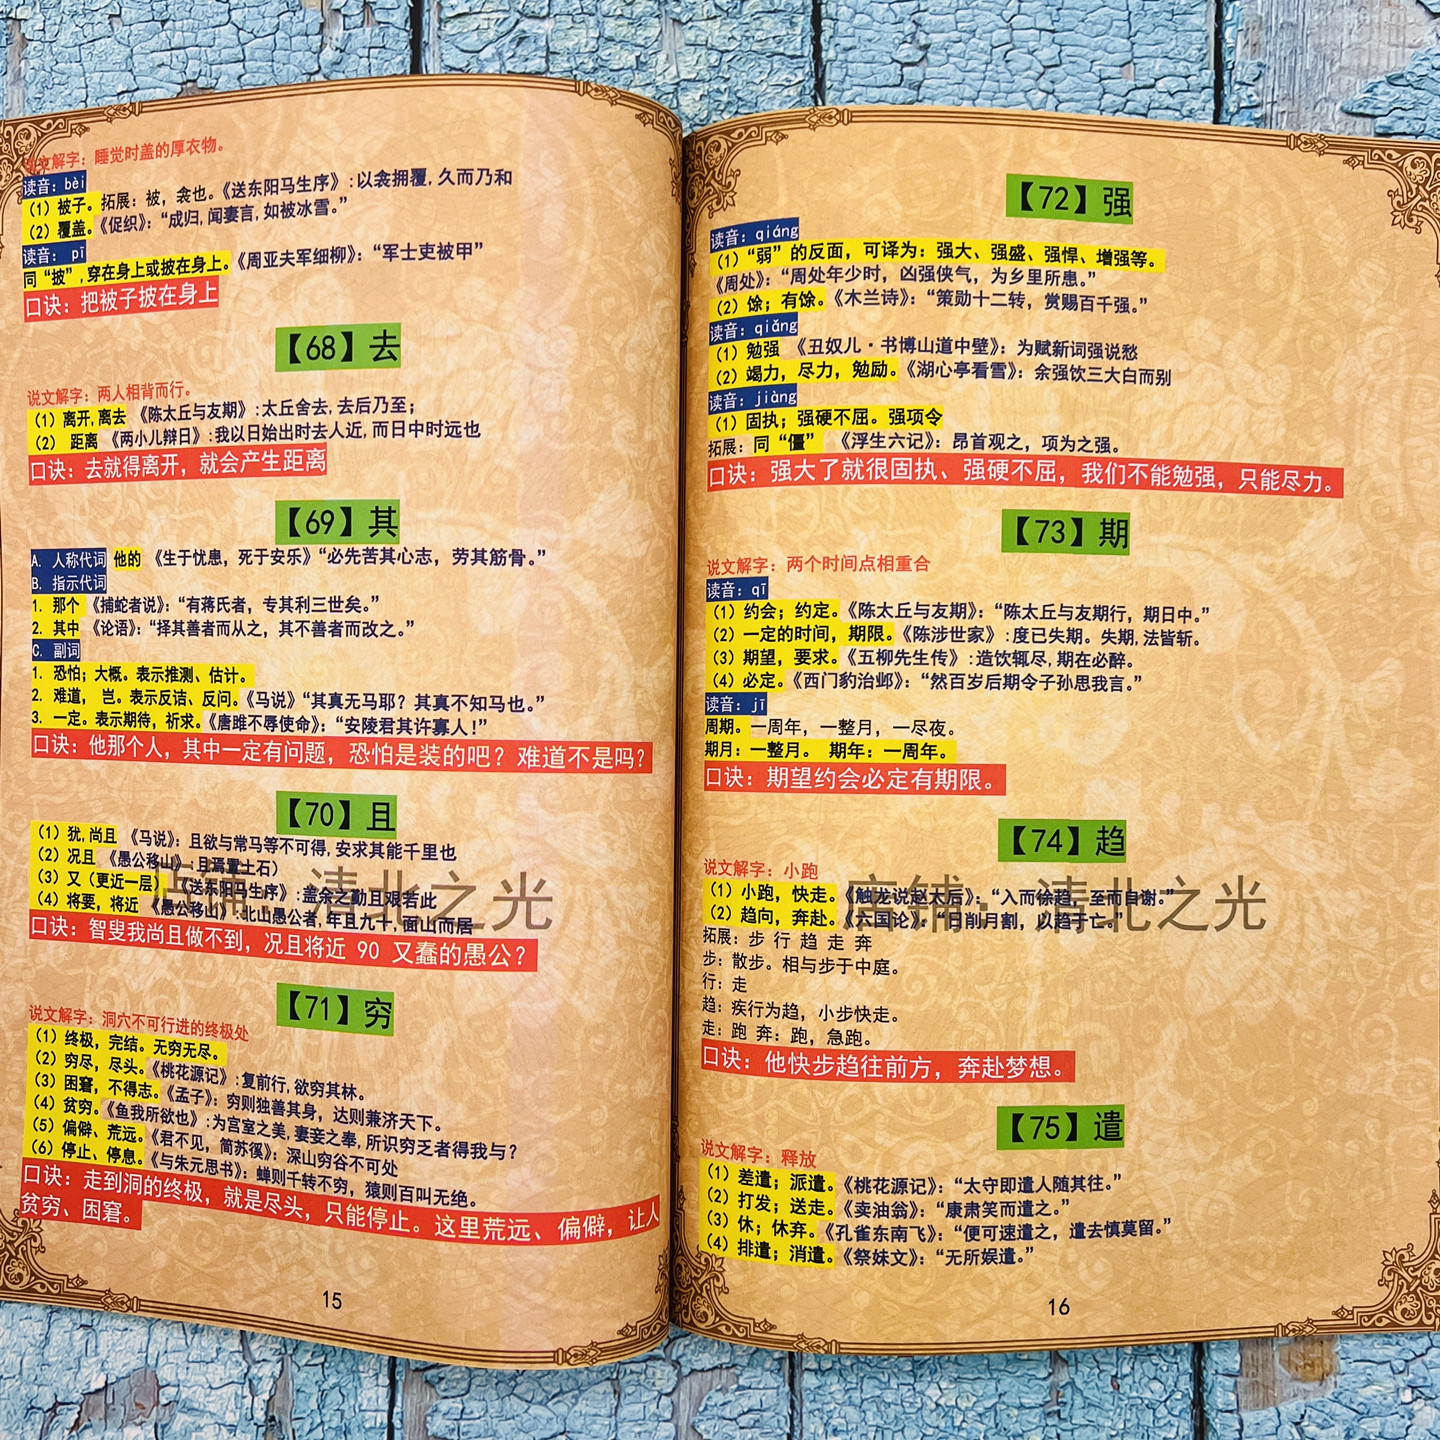 说文解字：睡觉时盖的厚衣物。
读音：bèi
（1）被子。拓展：被，衾也。《送东阳马生序》：以衾拥覆，久而乃和
（2）覆盖。《促织》：“成归，闻妻言，如被冰雪。”
读音： pī
同“披”，穿在身上或披在身上。《周亚夫军细柳》：“军士吏被甲”
口诀：把被子披在身上
【68】去
说文解字：两人相背而行。
（1）离开，离去 《陈太丘与友期》：太丘舍去，去后乃至；
（2） 距离 《两小儿辩日》：我以日始出时去人近，而日中时远也
口诀：去就得离开，就会产生距离
【69】其
A. 人称代词 他的 《生于忧患，死于安乐》“必先苦其心志，劳其筋骨。”
B. 指示代词
1. 那个 《捕蛇者说》：“有蒋氏者，专其利三世矣。”
2. 其中 《论语》：“择其善者而从之，其不善者而改之。”
C. 副词
1. 恐怕；大概。表示推测、估计。
2. 难道， 岂。表示反诘、反问。《马说》“其真无马耶？其真不知马也。”
3. 一定。表示期待，祈求。《唐雎不辱使命》：“安陵君其许寡人！”
口诀：他那个人，其中一定有问题，恐怕是装的吧？难道不是吗？
【70】且
（1）犹，尚且 《马说》：且欲与常马等不可得，安求其能千里也
（2）况且 《愚公移山》：且焉置土石）
（3）又（更近一层）《送东阳马生序》：盖余之勤且艰若此
（4）将要，将近 《愚公移山》：北山愚公者，年且九十，面山而居
口诀：智叟我尚且做不到，况且将近 90 又蠢的愚公？
店铺：清北之光
【71】穷
说文解字：洞穴不可行进的终极处
（1）终极，完结。无穷无尽。
（2）穷尽，尽头。《桃花源记》：复前行，欲穷其林。
（3）困窘，不得志。《孟子》：穷则独善其身，达则兼济天下。
（4）贫穷。《鱼我所欲也》：为宫室之美，妻妾之奉，所识穷乏者得我与？
（5）偏僻、荒远。《君不见，简苏徯》：深山穷谷不可处
（6）停止、停息。《与朱元思书》：蝉则千转不穷，猿则百叫无绝。
口诀：走到洞的终极，就是尽头，只能停止。这里荒远、偏僻，让人
贫穷、困窘。
15
【72】强
读音：qiáng
（1）“弱”的反面，可译为：强大、强盛、强悍、增强等。
《周处》：“周处年少时，凶强侠气，为乡里所患。”
（2）馀；有馀。《木兰诗》：“策勋十二转，赏赐百千强。”
读音：qiǎng
（1）勉强 《丑奴儿·书博山道中壁》：为赋新词强说愁
（2）竭力，尽力，勉励。《湖心亭看雪》：余强饮三大白而别
读音：jiàng
（1）固执；强硬不屈。强项令
拓展：同“僵” 《浮生六记》：昂首观之，项为之强。
口诀：强大了就很固执、强硬不屈，我们不能勉强，只能尽力。
【73】期
说文解字：两个时间点相重合
读音：qī
（1）约会；约定。《陈太丘与友期》：“陈太丘与友期行，期日中。”
（2）一定的时间，期限。《陈涉世家》：度已失期。失期，法皆斩。
（3）期望，要求。《五柳先生传》：造饮辄尽，期在必醉。
（4）必定。《西门豹治邺》：“然百岁后期令子孙思我言。”
读音：jī
周期。一周年，一整月，一尽夜。
期月：一整月。 期年：一周年。
口诀：期望约会必定有期限。
【74】趋
说文解字：小跑
（1）小跑，快走。《触龙说赵太后》：“入而徐趋，至而自谢。”
（2）趋向，奔赴。《六国论》：“日削月割，以趋于亡。”
店铺：清北之光
拓展：步 行 趋 走 奔
步：散步。相与步于中庭。
行：走
趋：疾行为趋，小步快走。
走：跑 奔：跑，急跑。
口诀：他快步趋往前方，奔赴梦想。
【75】遣
说文解字：释放
（1）差遣；派遣。《桃花源记》：“太守即遣人随其往。”
（2）打发；送走。《卖油翁》：“康肃笑而遣之。”
（3）休；休弃。《孔雀东南飞》：“便可速遣之，遣去慎莫留。”
（4）排遣；消遣。《祭妹文》：“无所娱遣。”
16